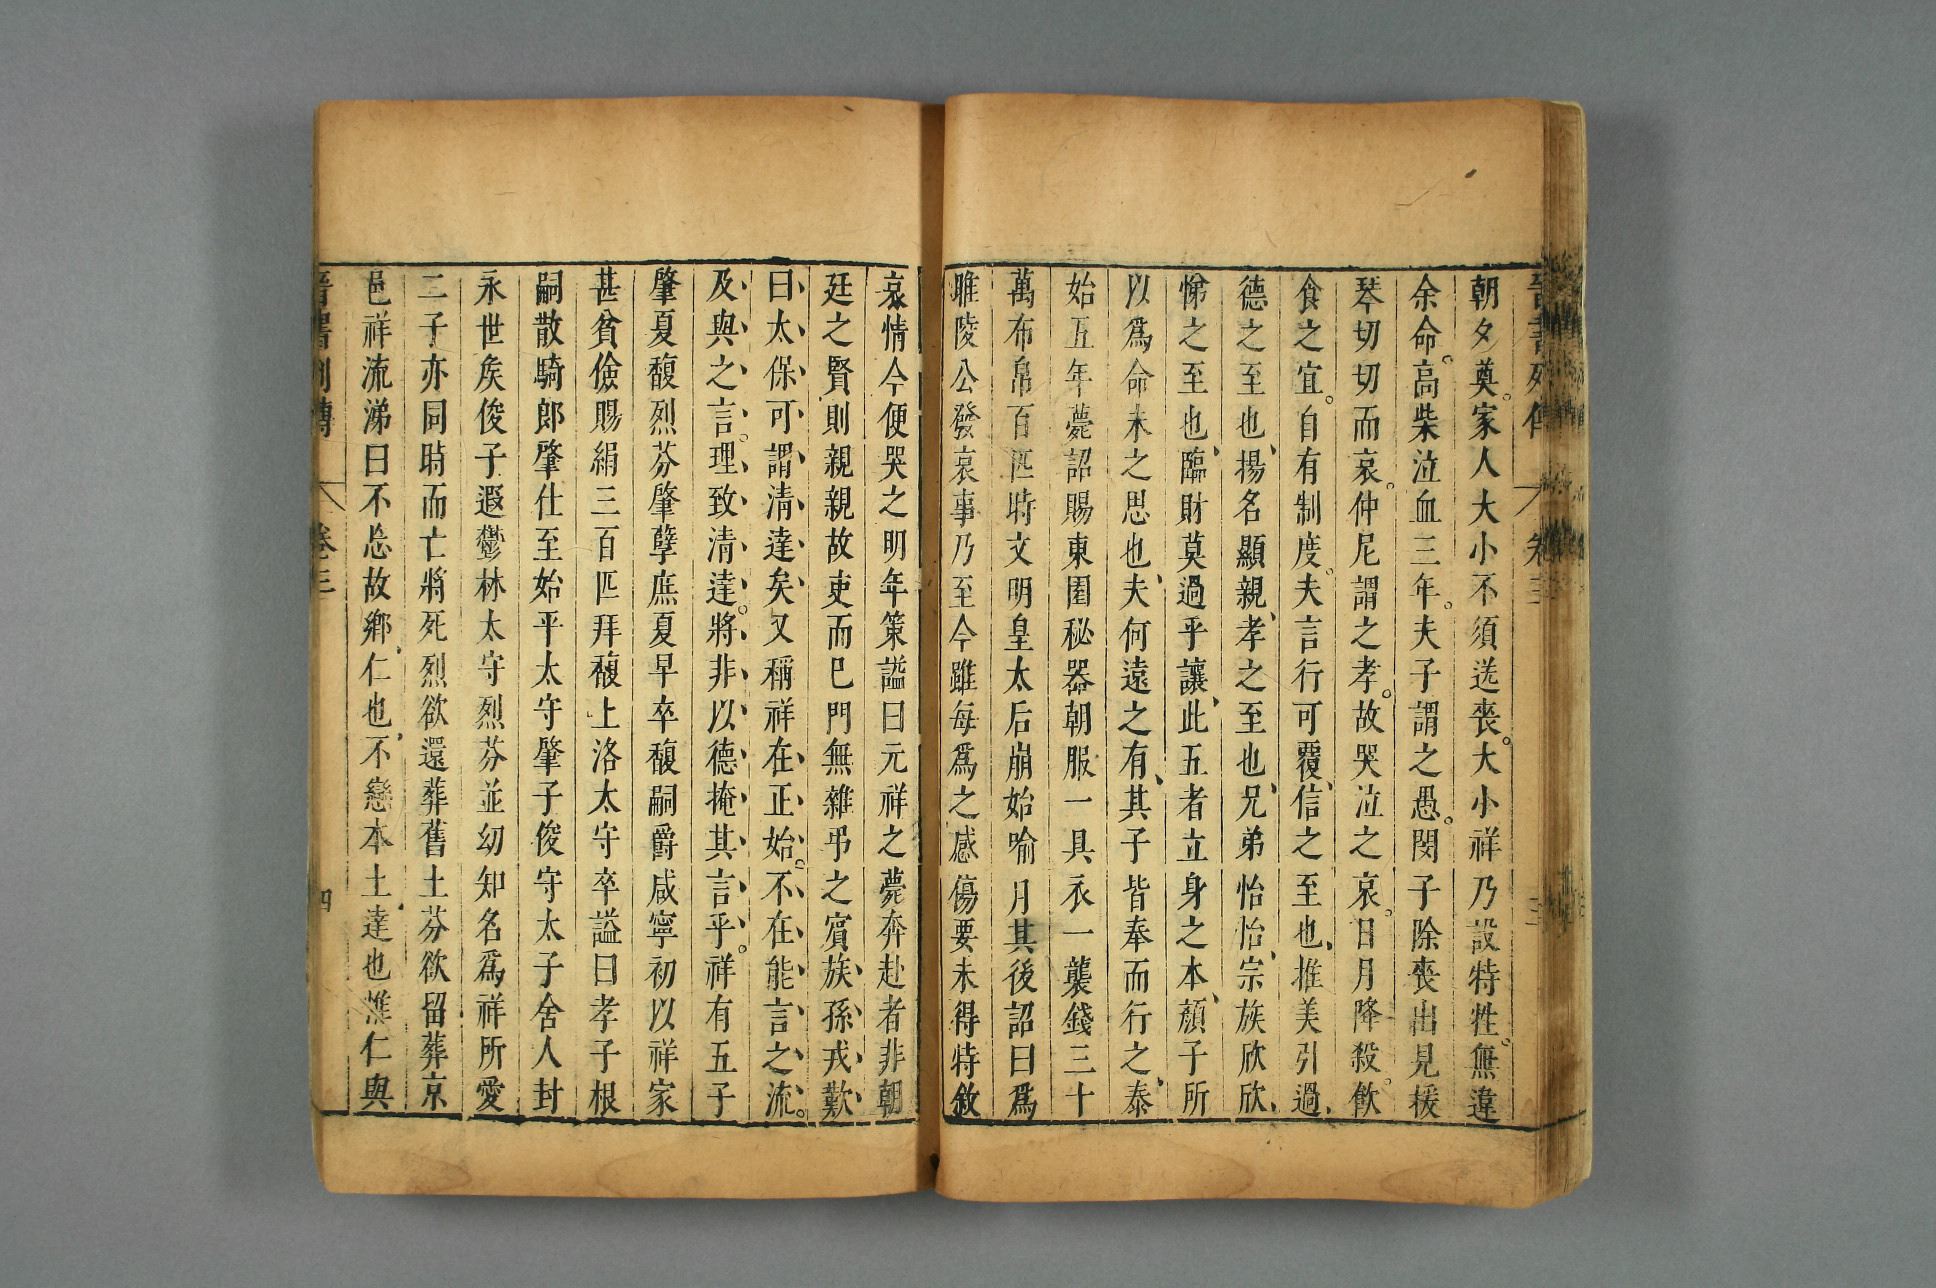 朝夕奠。家人大小不須送喪。大小祥乃設特牲。無違
余命。高柴泣血三年。夫子謂之愚。閔子除喪出見援
琴切切而哀。仲尼謂之孝。故哭泣之哀。日月降殺。飲
食之宜。自有制度。夫言行可覆、信之至也、推美引過、
德之至也、揚名顯親、孝之至也、兄弟怡怡、宗族欣欣、
悌之至也、臨財莫過乎讓、此五者立身之本、顏子所
以爲命未之思也、夫何遠之有、其子皆奉而行之、泰
始五年薨詔賜東園秘器朝服一具衣一襲錢三十
萬布帛百匹時文明皇太后崩始喻月其後詔曰爲
睢陵公發哀事乃至今雖每爲之感傷要未得特敘
哀情今便哭之明年策謚曰元祥之薨奔赴者非朝
廷之賢則親親故吏而巳門無雜弔之賓族孫戎歎
曰太保可謂淸達矣又稱祥在正始。不在能言之流。
及與之言。理致清達。將非以德掩其言乎。祥有五子
肇夏馥烈芬肇孽庶夏早卒馥嗣爵咸寧初以祥家
甚貧儉賜絹三百匹拜馥上洛太守卒謚曰孝子根
嗣散騎郎肇仕至始平太守肇子俊守太子舍人封
永世矦俊子遐鬱林太守烈芬並幼知名爲祥所愛
二子亦同時而亡將死烈欲還葬舊土芬欲留葬京
邑祥流涕曰不忘故鄉、仁也、不戀本土、達也惟仁與
晉書列傳 卷三 四